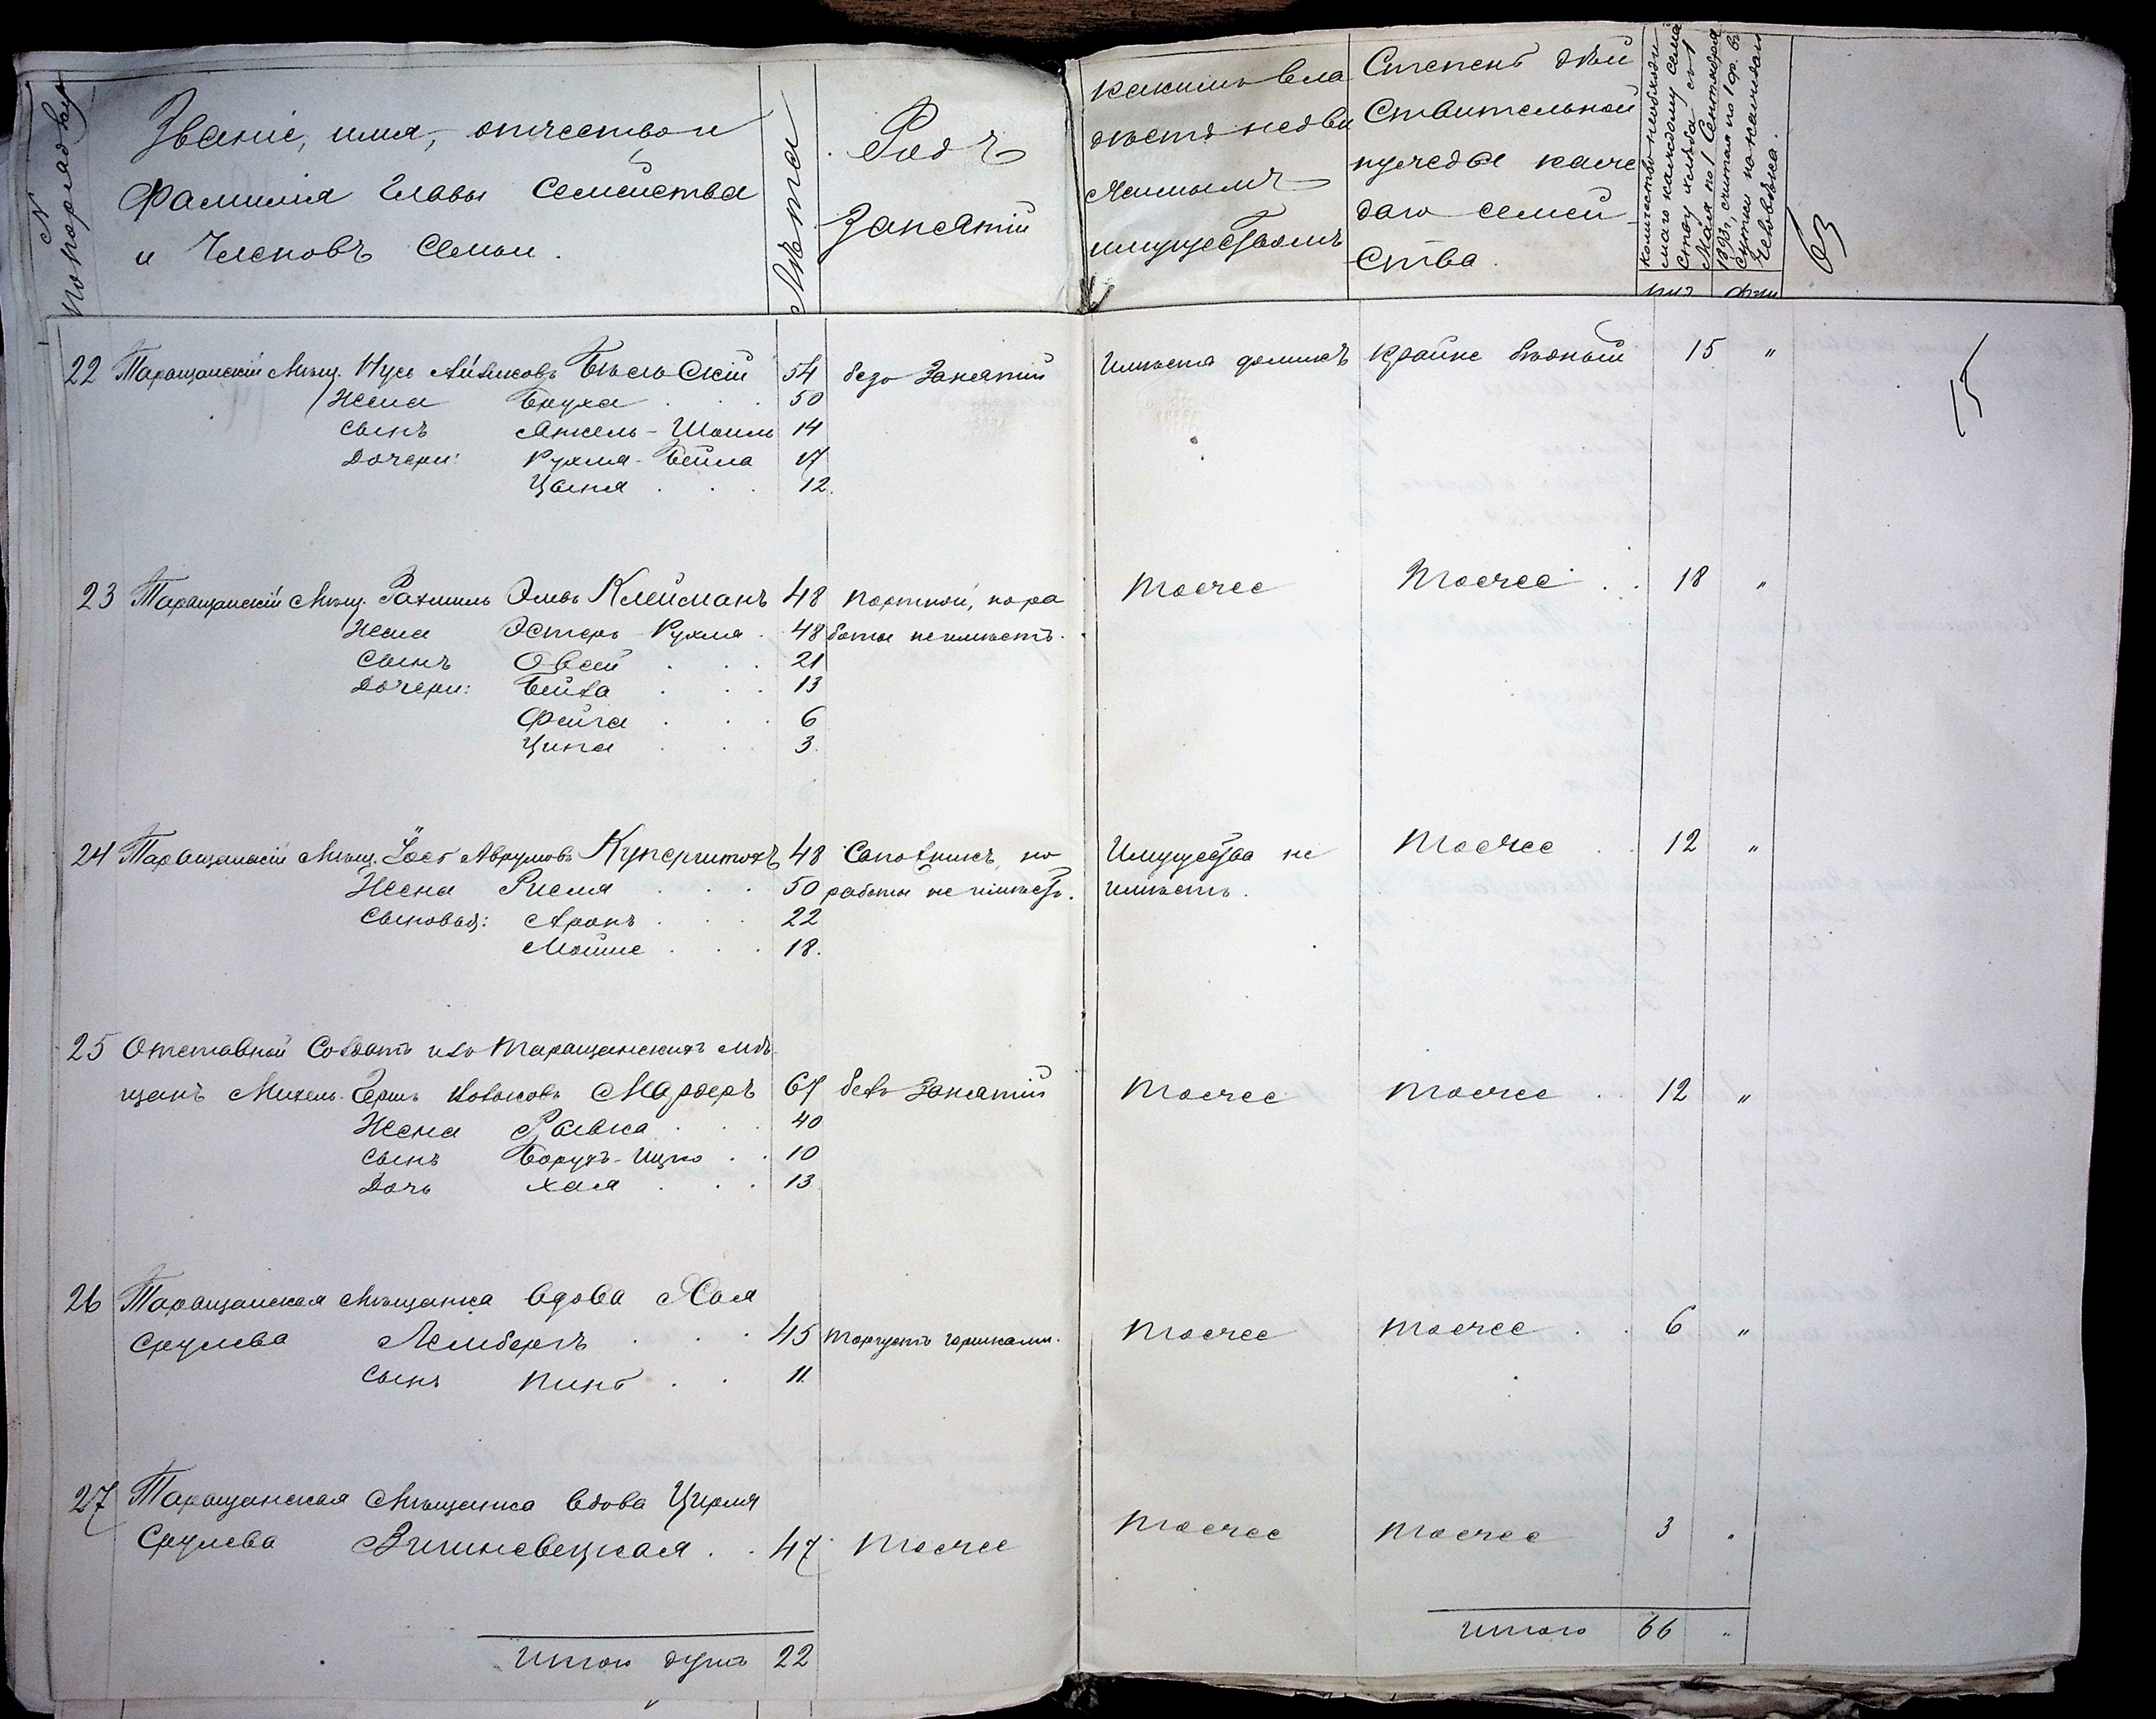 № по порядку
Званіе, имя, отчество и
Фамилія Главы Семейства
и Членовъ Семьи.
Лѣта
Родъ
Занятій
Какимъ вла
дѣетъ недви
жимымъ
имуществомъ
Степень дѣй
ствительной
нужды каж
даго семей
ства.
Количество необходи-
маго каждому семей
ству хлѣба съ 1
Мая по 1 Сентября
1893 г., считая по 1 ф. въ
сутки на каждаго
человѣка.
пуд
фун
63
15
22 Таращанскій Мѣщ. Нусь Айзиковъ Бѣльскій 54 безъ Занятій Имѣетъ домикъ крайне бѣдный 15 "
Жена Бруха . . . 50
Сынъ Анкель-Шоиль 14
Дочери: Рухля-Бейла 17
Цыпя . . . 12.
23 Таращанскій Мѣщ. Рахмиль Элевъ Клейманъ 48 Портной, но ра Тоже Тоже . . 18 "
Жена Эстеръ-Рухля . 48 боты не имѣетъ.
Сынъ Овсей . . . 21
Дочери: Бейла . . . 13
Фейга . . . 6
Ципа . . . 3.
24 Таращанскій Мѣщ. Іосъ Аврумовъ Куперштохъ 48 Сапожникъ, но Имущества не Тоже . 12 "
Жена Рися . . . 50 работы не имѣетъ. имѣетъ.
Сыновья: Аронъ . . . 22
Мойше . . . 18.
25 Отставной Солдатъ изъ Таращанскихъ мѣ-
щанъ Михель-Гершъ Мардеръ 67 безъ Занятій Тоже Тоже . 12 "
Жена Ривка . . . 40
Сынъ Борухъ-Ицко . . 10
Дочь Хая . . . 13
26 Таращанская Мѣщанка вдова Хая
Срулева Лембергъ . . . 45 Торгуетъ горшками. Тоже Тоже . . 6 "
Сынъ Пинь . . 11.
27 Таращанская Мѣщанка вдова Цирля
Срулева Вишневецкая . . 47 Тоже Тоже Тоже 3 "
Итого душъ 22
Итого 66 "